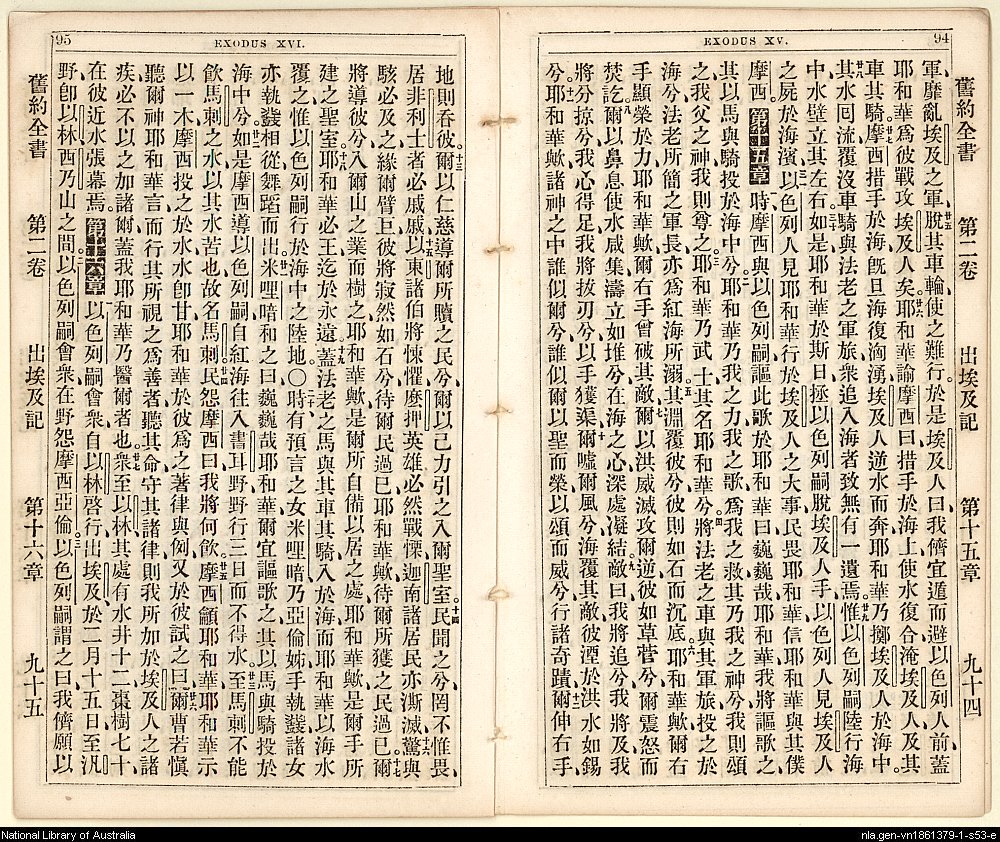 94
EXODUS XV.
舊約全書 第二卷 出埃及記 第十五章 九十四
軍、靡亂埃及之軍、脫其車輪、使之難行、於是埃及人曰、我儕宜遁而避以色列人前、蓋
耶和華爲彼戰攻埃及人矣、耶和華諭摩西曰、措手於海上、使水復合、淹埃及人、及其
車其騎、摩西措手於海、旣旦海復洶湧、埃及人逆水而奔、耶和華乃擲埃及人於海中、
其水囘流、覆沒車騎、與法老之軍旅、衆追入海者、致無有一遺焉、惟以色列嗣陸行海
中、水壁立其左右、如是耶和華於斯日、拯以色列嗣脫埃及人手、以色列人見埃及人
之屍於海濱、以色列人見耶和華行於埃及人之大事、民畏耶和華、信耶和華、與其僕
摩西、第十五章 時摩西與以色列嗣謳此歌於耶和華曰、巍巍哉耶和華、我將謳歌之、
其以馬與騎投於海中兮、耶和華乃我之力、我之歌、爲我之救、其乃我之神兮、我則頌
之、我父之神、我則尊之、耶和華乃武士、其名耶和華兮、將法老之車、與其軍旅、投之於
海兮、法老所簡之軍長、亦爲紅海所溺、其淵覆彼兮、彼則如石而沉底、耶和華歟、爾右
手顯榮於力、耶和華歟、爾右手曾破其敵、爾以洪威滅攻爾逆彼如草菅兮、爾震怒而
焚訖、爾以鼻息使水咸集、濤立如堆兮、在海之心、深處凝結、敵曰、我將追兮、我將及、我
將分掠兮、我心得足、我將拔刃兮、以手獲渠、爾噓爾風兮、海覆其敵、彼湮於洪水如錫
兮、耶和華歟、諸神之中、誰似爾兮、誰似爾以聖而榮、以頌而威兮、行諸奇蹟、爾伸右手、
95
EXODUS XVI.
地則吞彼、爾以仁慈、導爾所贖之民兮、爾以己力、引之入爾聖室、民聞之兮、罔不惟畏、
居非利士者、必戚戚、以東諸伯將悚懼、麼押英雄必然戰慄、迦南諸居民、亦澌滅、驚與
駭必及之、緣爾臂巨、彼將寂然如石兮、待爾民過已、耶和華歟、待爾所獲之民過已、爾
將導彼兮、入爾山之業而樹之、耶和華歟、是爾所自備以居之處、耶和華歟、是爾手所
建之聖室、耶和華必王迄於永遠、蓋法老之馬與其車其騎入於海、而耶和華以海水
覆之、惟以色列嗣行於海中之陸地、〇時有預言之女米哩暗、乃亞倫姊、手執鼗、諸女
亦執鼗相從、舞蹈而出、米哩暗和之曰、巍巍哉耶和華、爾宜謳歌之、其以馬與騎投於
海中兮、如是摩西導以色列嗣自紅海往、入書耳野、野行三日而不得水、至馬剌、不能
飲馬剌之水、以其水苦也、故名馬剌、民怨摩西曰、我將何飲、摩西籲耶和華、耶和華示
以一木、摩西投之於水、水卽甘、耶和華於彼爲之著律與例、又於彼試之、曰、爾曹若愼
聽爾神耶和華言、而行其所視之爲善者、聽其命、守其諸律、則我所加於埃及人之諸
疾、必不以之加諸爾、蓋我耶和華乃醫爾者也、衆至以林、其處有水井十二、棗樹七十、
在彼近水張幕焉、第十六章 以色列嗣會衆、自以林啓行、出埃及於二月十五日、至汎
野、卽以林西乃山之間、以色列嗣會衆在野怨摩西亞倫、以色列嗣謂之曰、我儕願以
舊約全書 第二卷 出埃及記 第十六章 九十五
National Library of Australia
nla.gen-vn1861379-1-s53-e